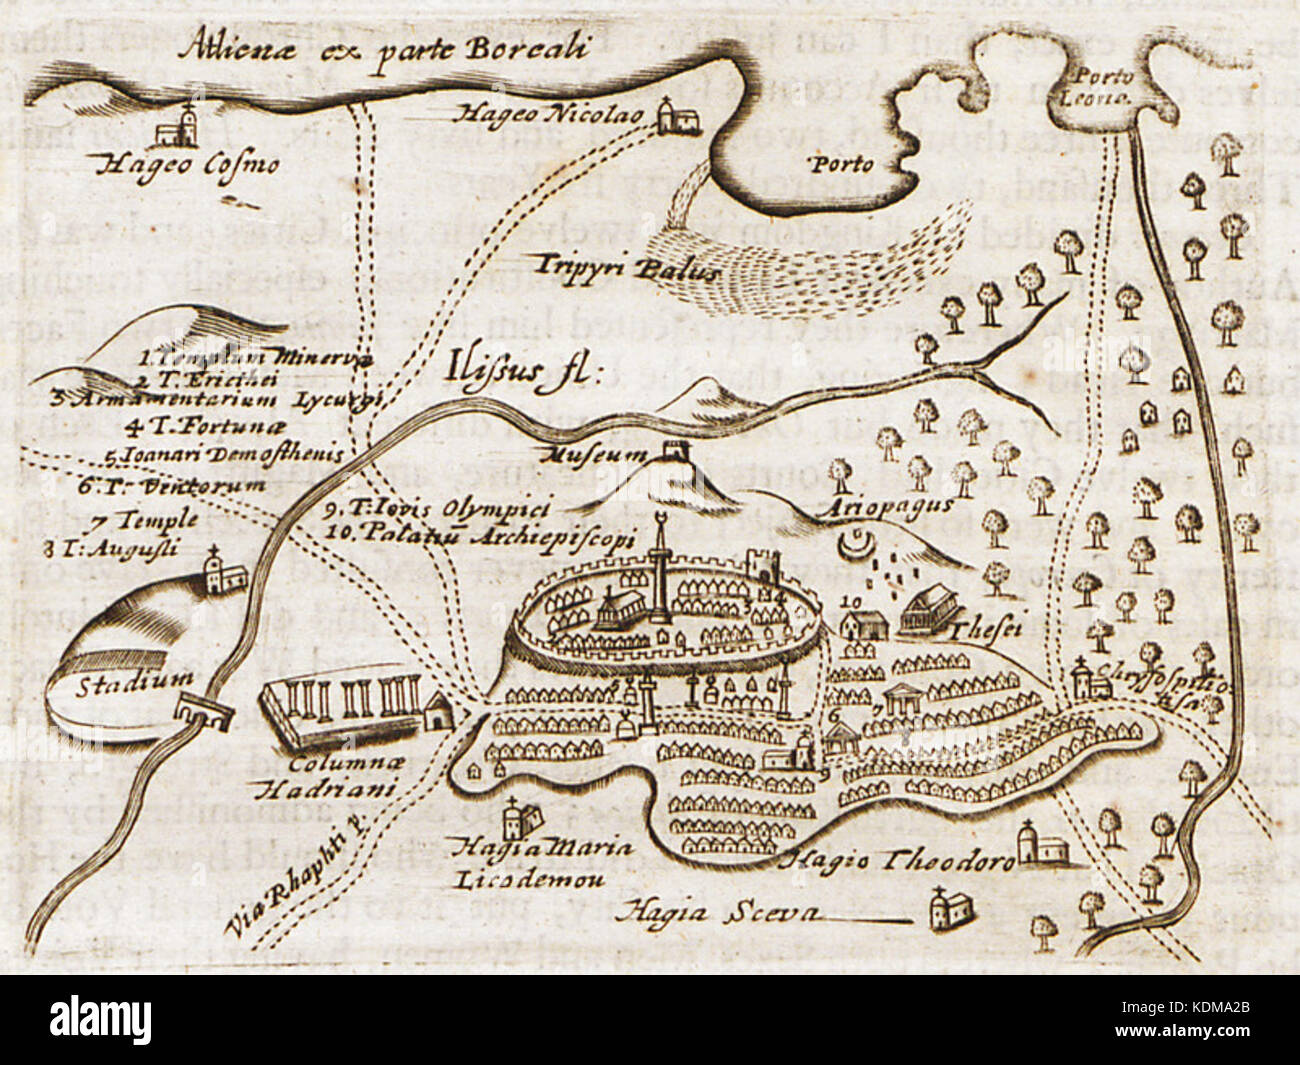 Athenæ ex parte Boreali
Porto
Leone.
Hageo Nicolao
Hageo Cosmo
Porto
Tripyri Palus
1. Templum Minervæ
2 T. Ericthei
3 Armamentarium Lycurgi
4 T. Fortunæ
5 Ioanari Demosthenis
6. T. Ventorum
7 Temple
8 T: Augusti
Ilissus fl:
Museum
9. T: Iovis Olympici
10. Palatiū Archiepiscopi
Ariopagus
10
3
4
Thesei
Stadium
Chrysospilio-
tisa
7
6
Columnæ
Hadriani
Via Rhaphti p.
Hagia Maria
Licodemou
Hagio Theodoro
Hagia Sceva
alamy
Image ID: KDMA2B
www.alamy.com